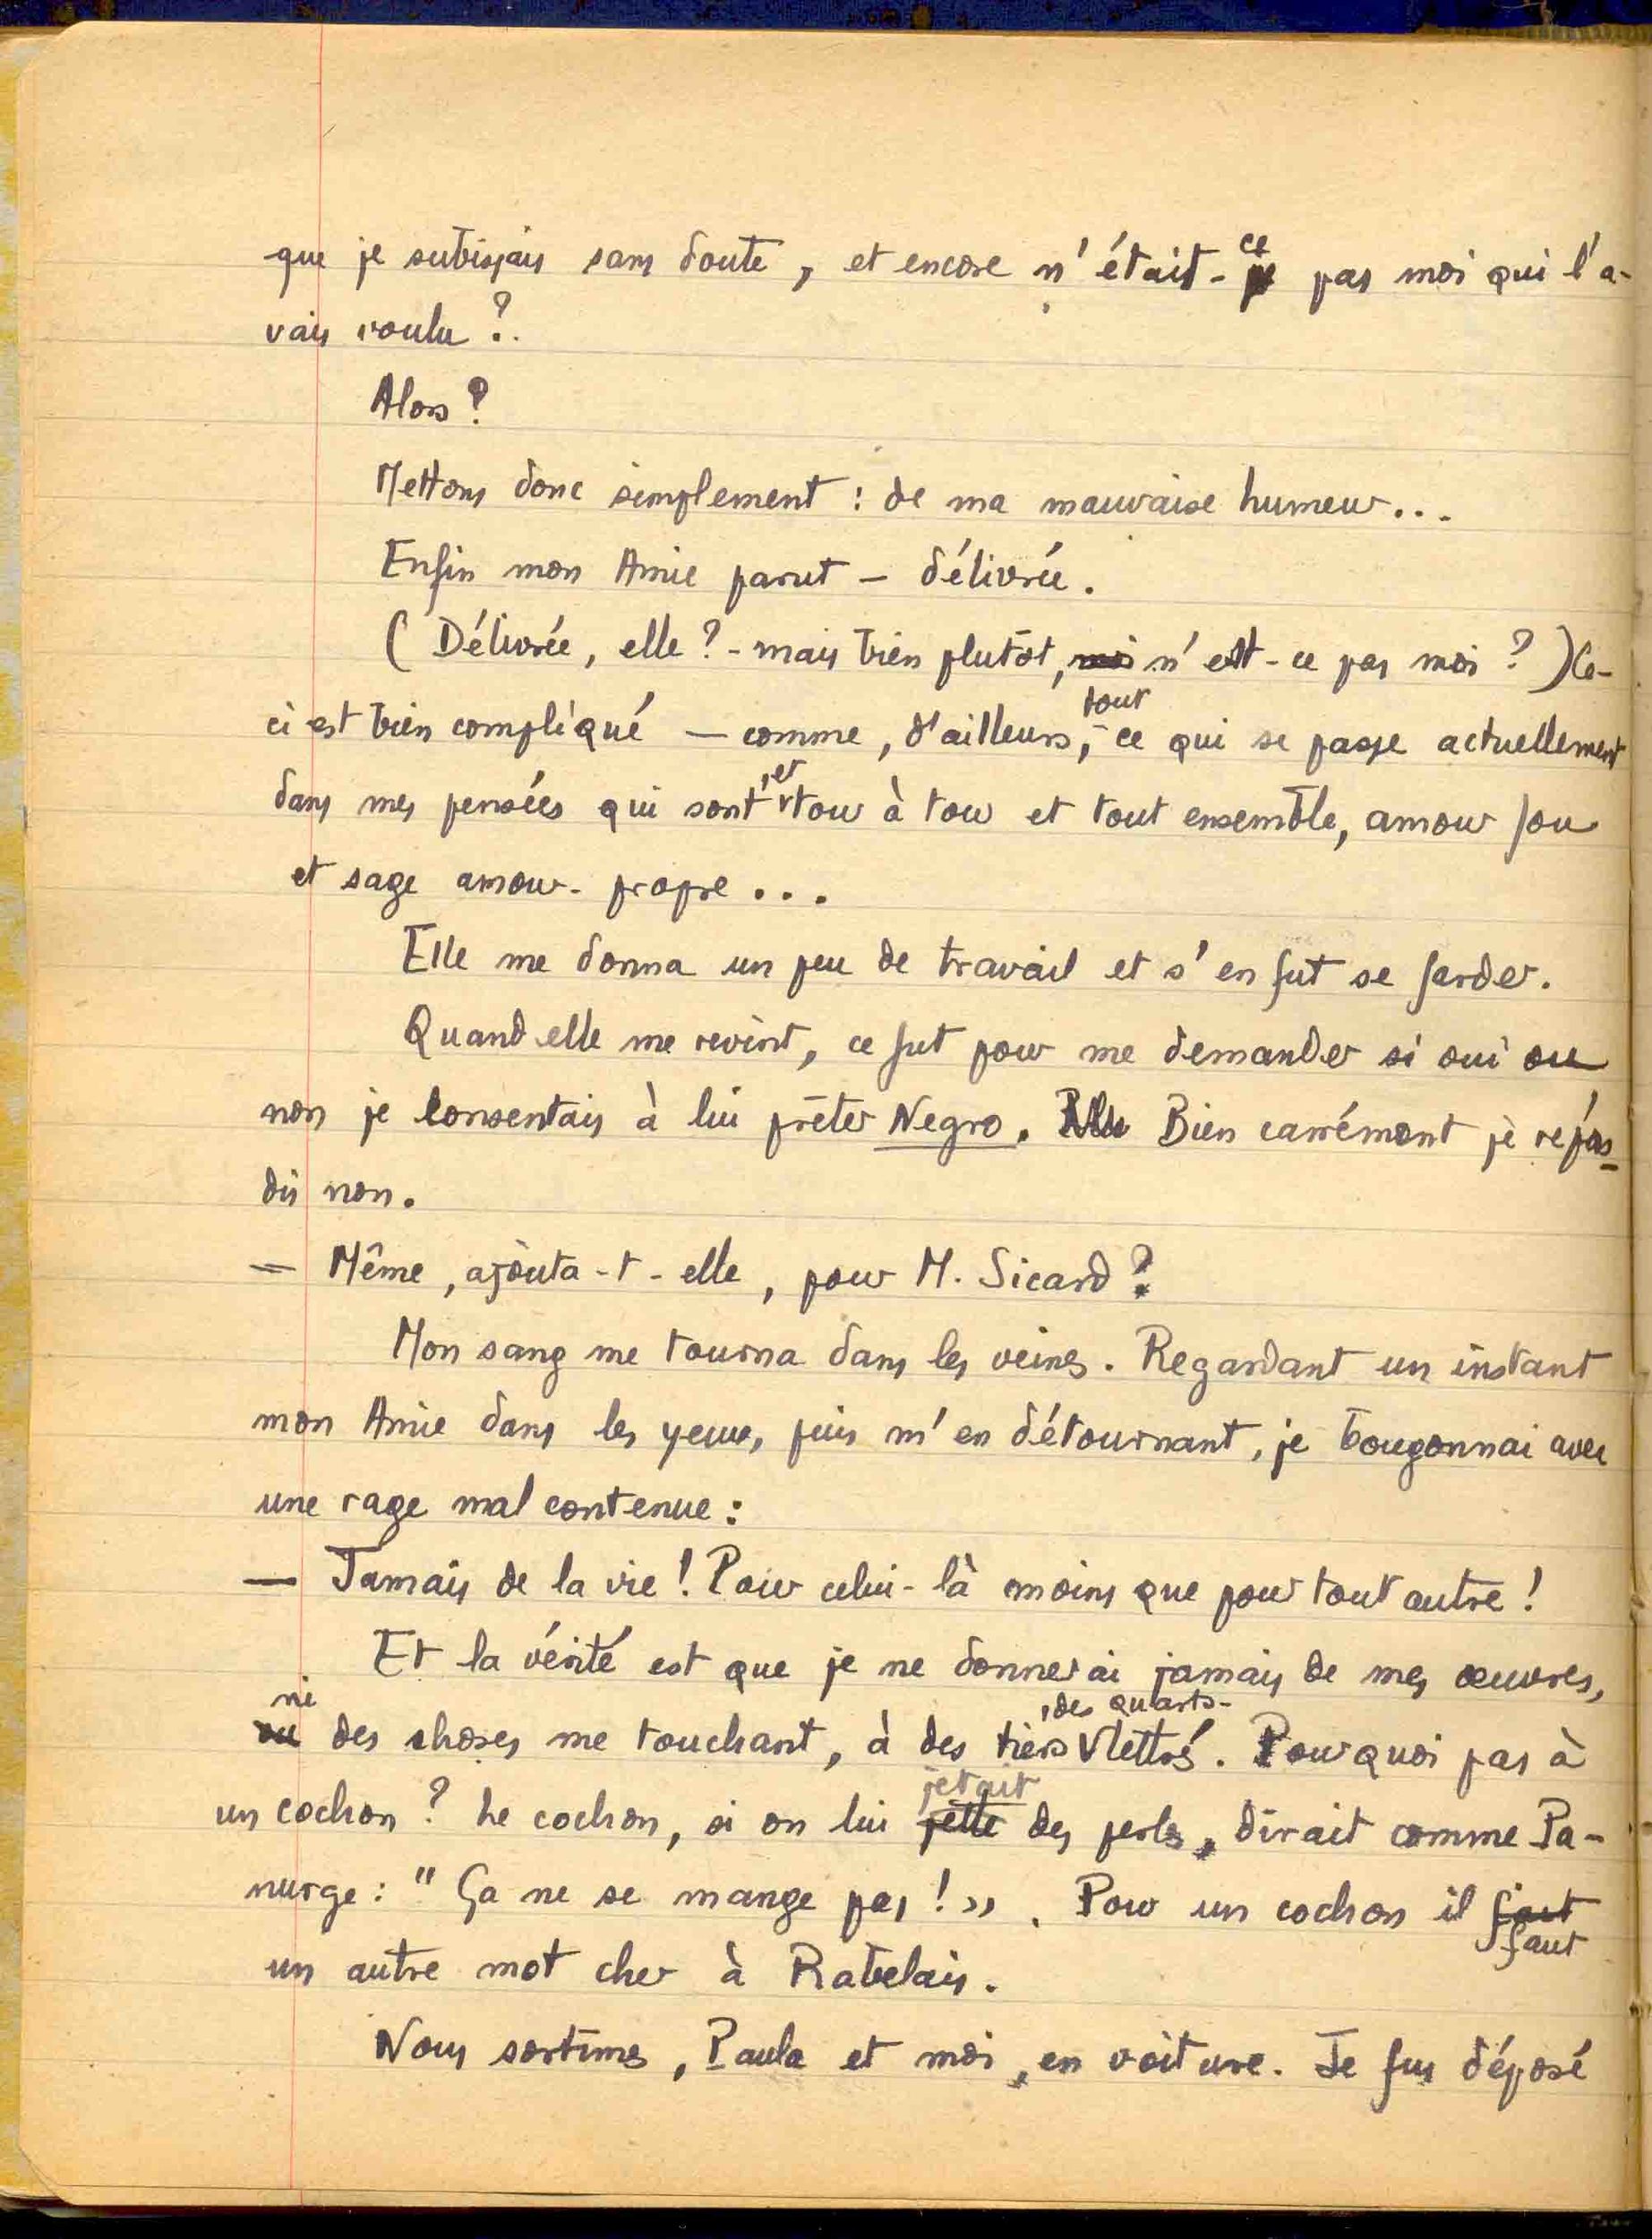 que je subissais sans doute, et encore n'était-ce pas moi qui l'a-
vais voulu ?
Alors ?
Mettons donc simplement : de ma mauvaise humeur...
Enfin mon Amie parut — délivrée.
( Délivrée, elle ? - mais bien plutôt, n'est-ce pas moi ? ) Ce-
ci est bien compliqué — comme, d'ailleurs, tout ce qui se passe actuellement
dans mes pensées qui sont, et tour à tour et tout ensemble, amour fou
et sage amour-propre...
Elle me donna un peu de travail et s'en fut se farder.
Quand elle me revint, ce fut pour me demander si oui ou
non je consentais à lui prêter Negro. Bien carrément je répon-
dis non.
— Même, ajouta-t-elle, pour M. Sicard ?
Mon sang me tourna dans les veines. Regardant un instant
mon Amie dans les yeux, puis m'en détournant, je bougonnai avec
une rage mal contenue :
— Jamais de la vie ! Pour celui-là moins que pour tout autre !
Et la vérité est que je ne donnerai jamais de mes œuvres,
ni des choses me touchant, à des tiers, des quarts-lettrés. Pourquoi pas à
un cochon ? Le cochon, si on lui jetait des perles, dirait comme Pa-
nurge : "Ça ne se mange pas ! ». Pour un cochon il faut
un autre mot cher à Rabelais.
Nous sortîmes, Paula et moi, en voiture. Je fus déposé